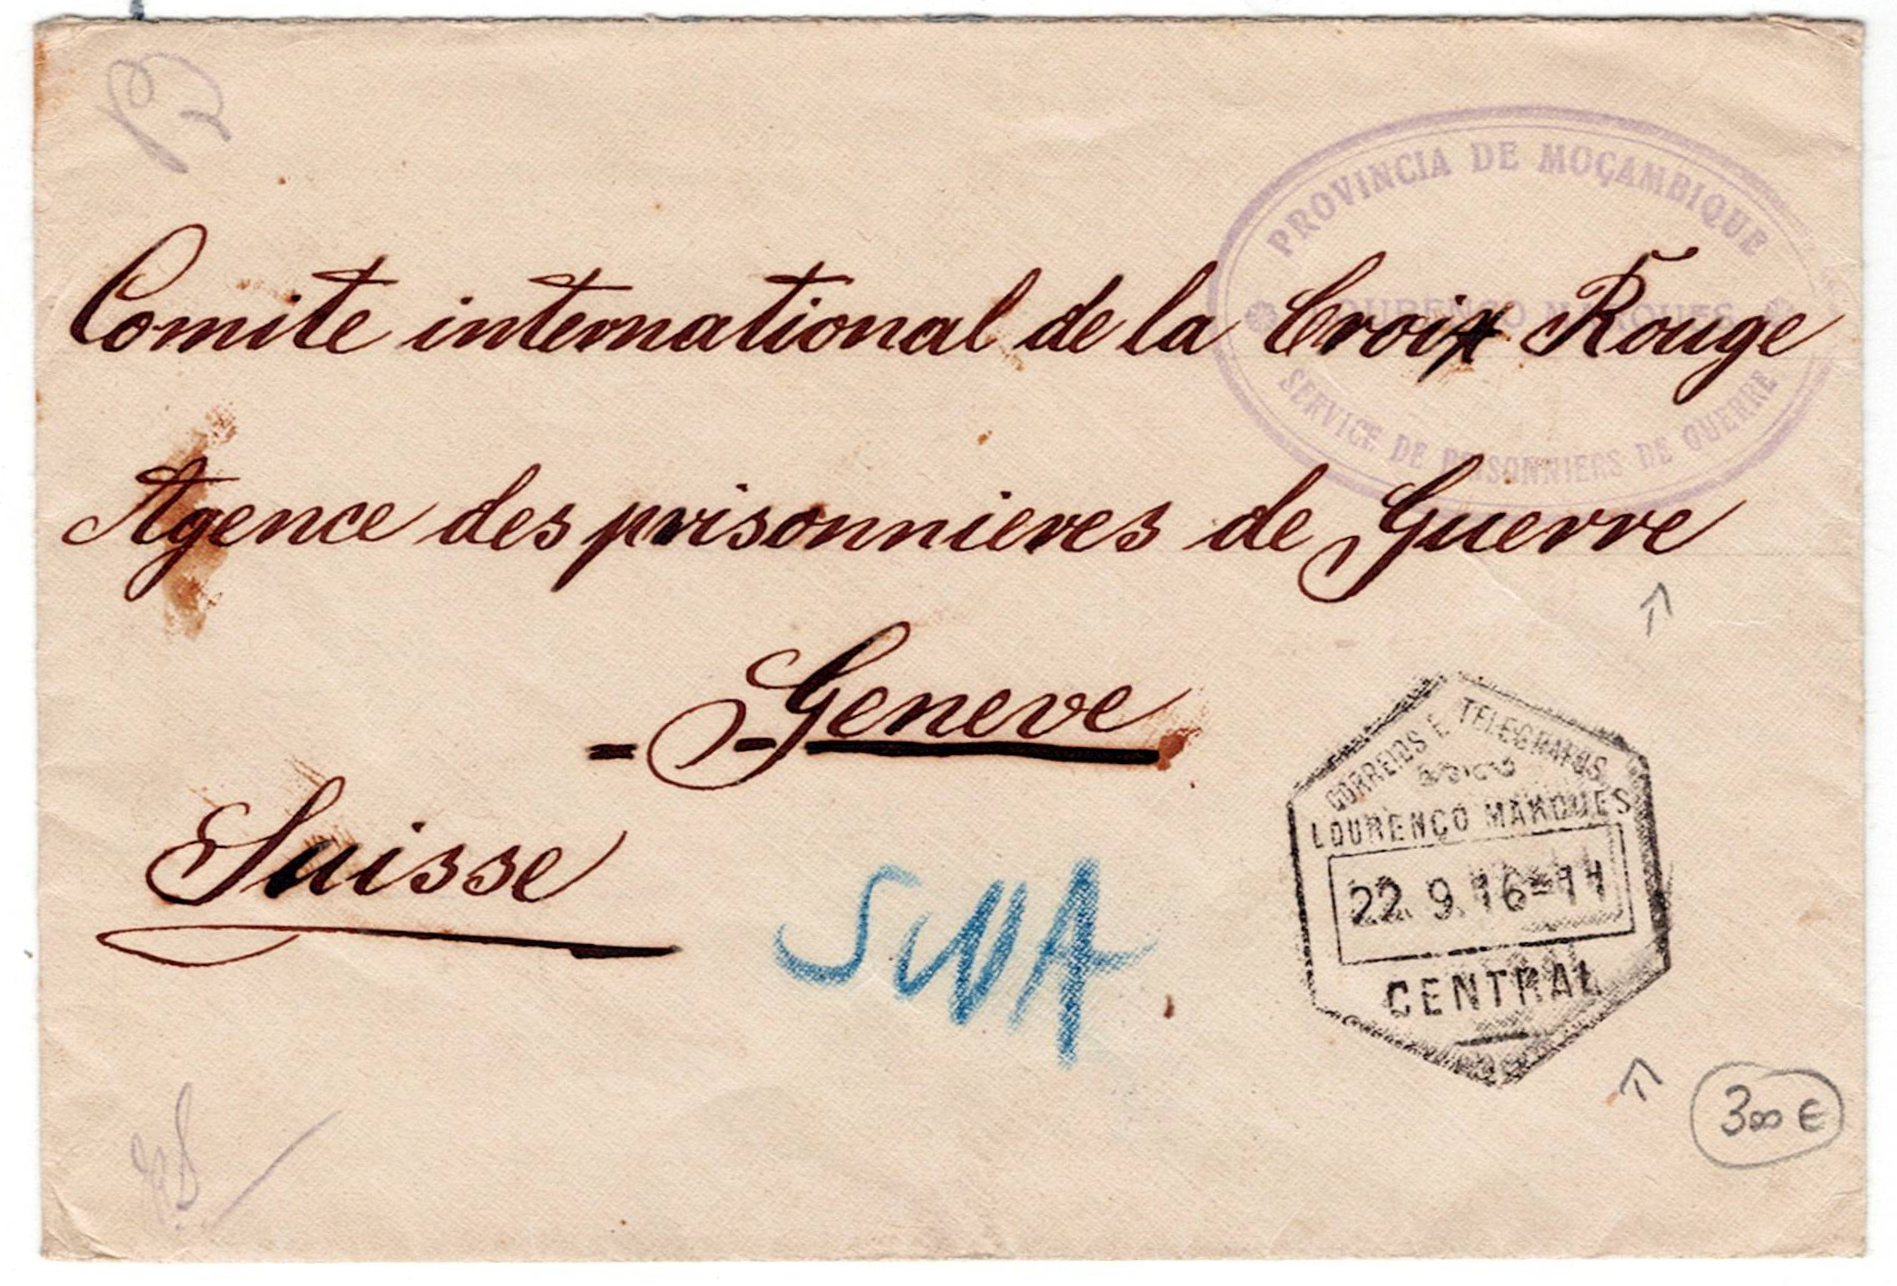 PROVINCIA DE MOÇAMBIQUE
LOURENÇO MARQUES
SERVICE DE PRISONNIERS DE GUERRE
Comite international de la Croix Rouge
Agence des prisonnieres de Guerre
- - Geneve
Suisse
CORREIOS E TELEGRAFOS
LOURENÇO MARQUES
22. 9. 16=11
CENTRAL
300 €